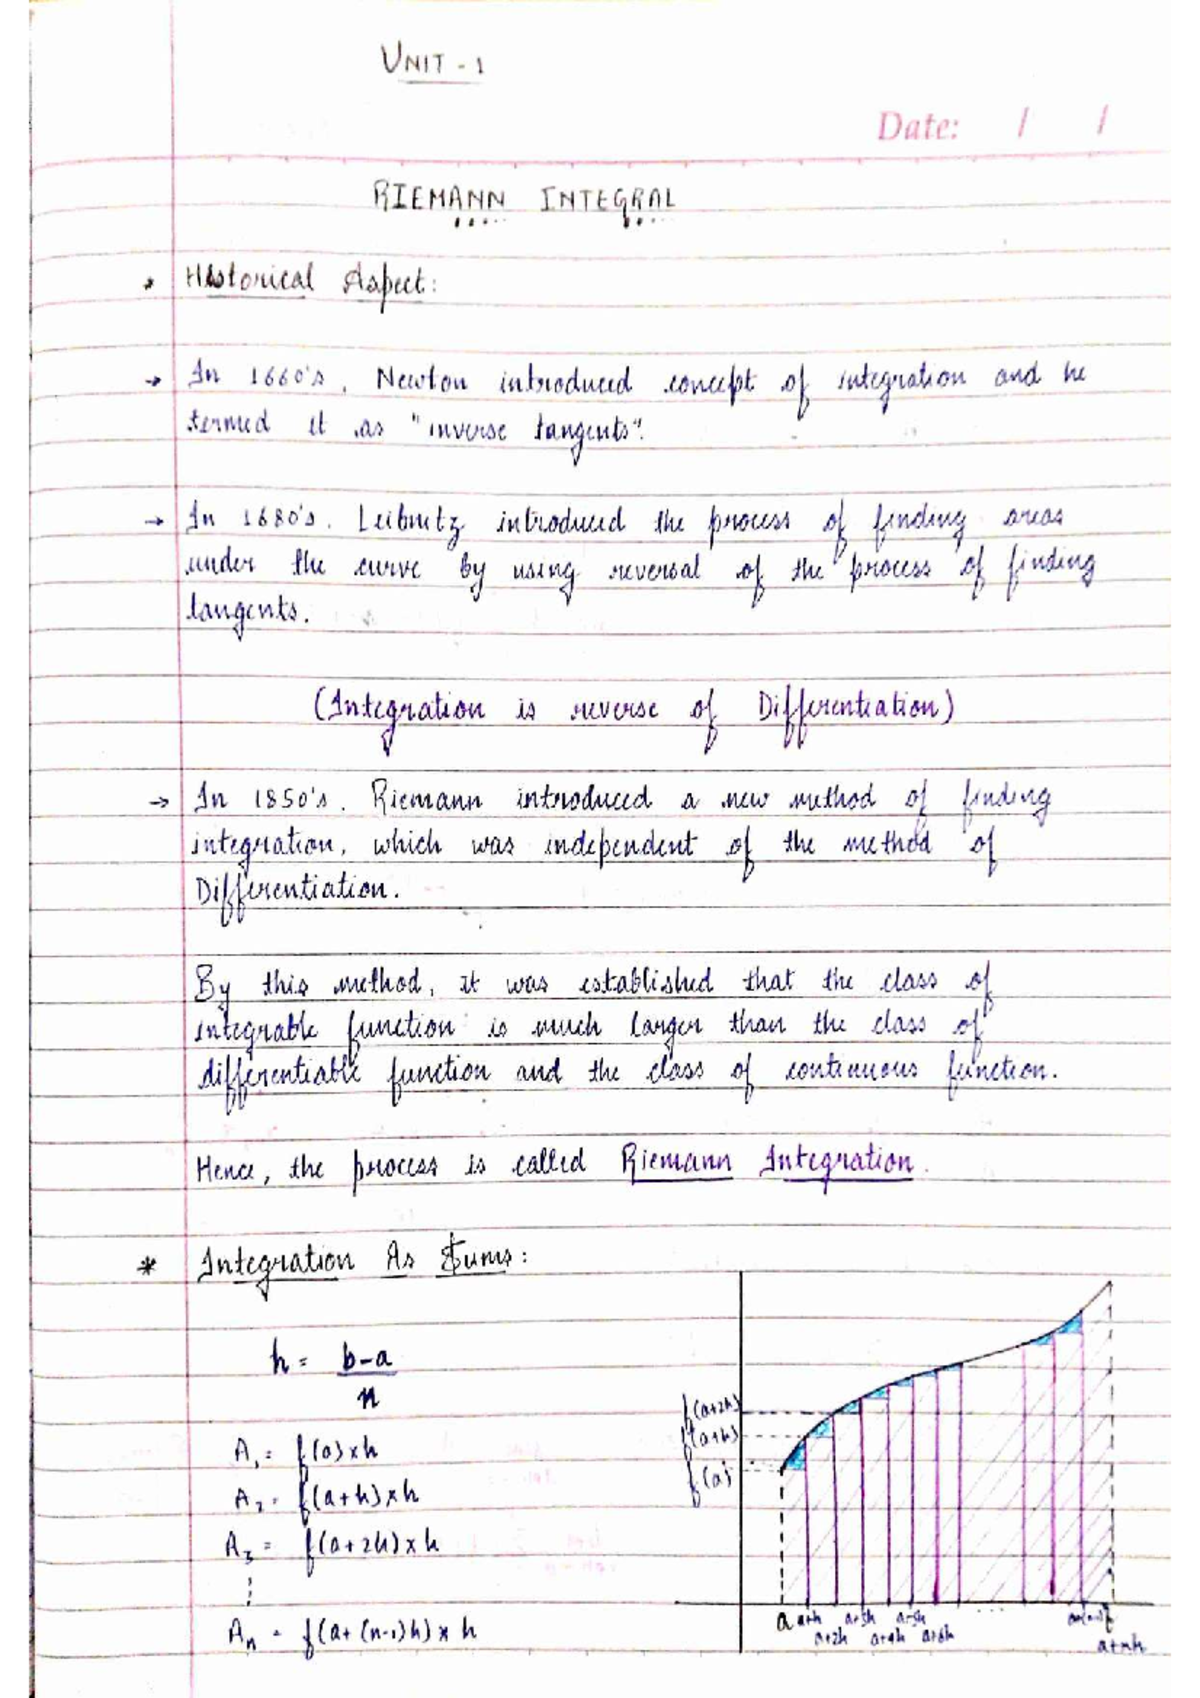 UNIT - 1
Date: / /
RIEMANN INTEGRAL
* Historical Aspect:
→ In 1660's, Newton introduced concept of integration and he
termed it as "inverse tangents".
→ In 1680's, Leibnitz introduced the process of finding areas
under the curve by using reversal of the process of finding
tangents.
(Integration is reverse of Differentiation)
→ In 1850's, Riemann introduced a new method of finding
integration, which was independent of the method of
Differentiation.
By this method, it was established that the class of
integrable function is much larger than the class of
differentiable function and the class of continuous function.
Hence, the process is called Riemann Integration.
* Integration As Sums:
h = b-a
n
A₁ = f(a)×h
A₂ = f(a+h)×h
A₃ = f(a+2h)×h
Aₙ = f(a+(n-1)h)×h
f(a+2h)
f(a+h)
f(a)
a a+h a+3h a+5h ...
a+2h a+4h a+6h
a+nh